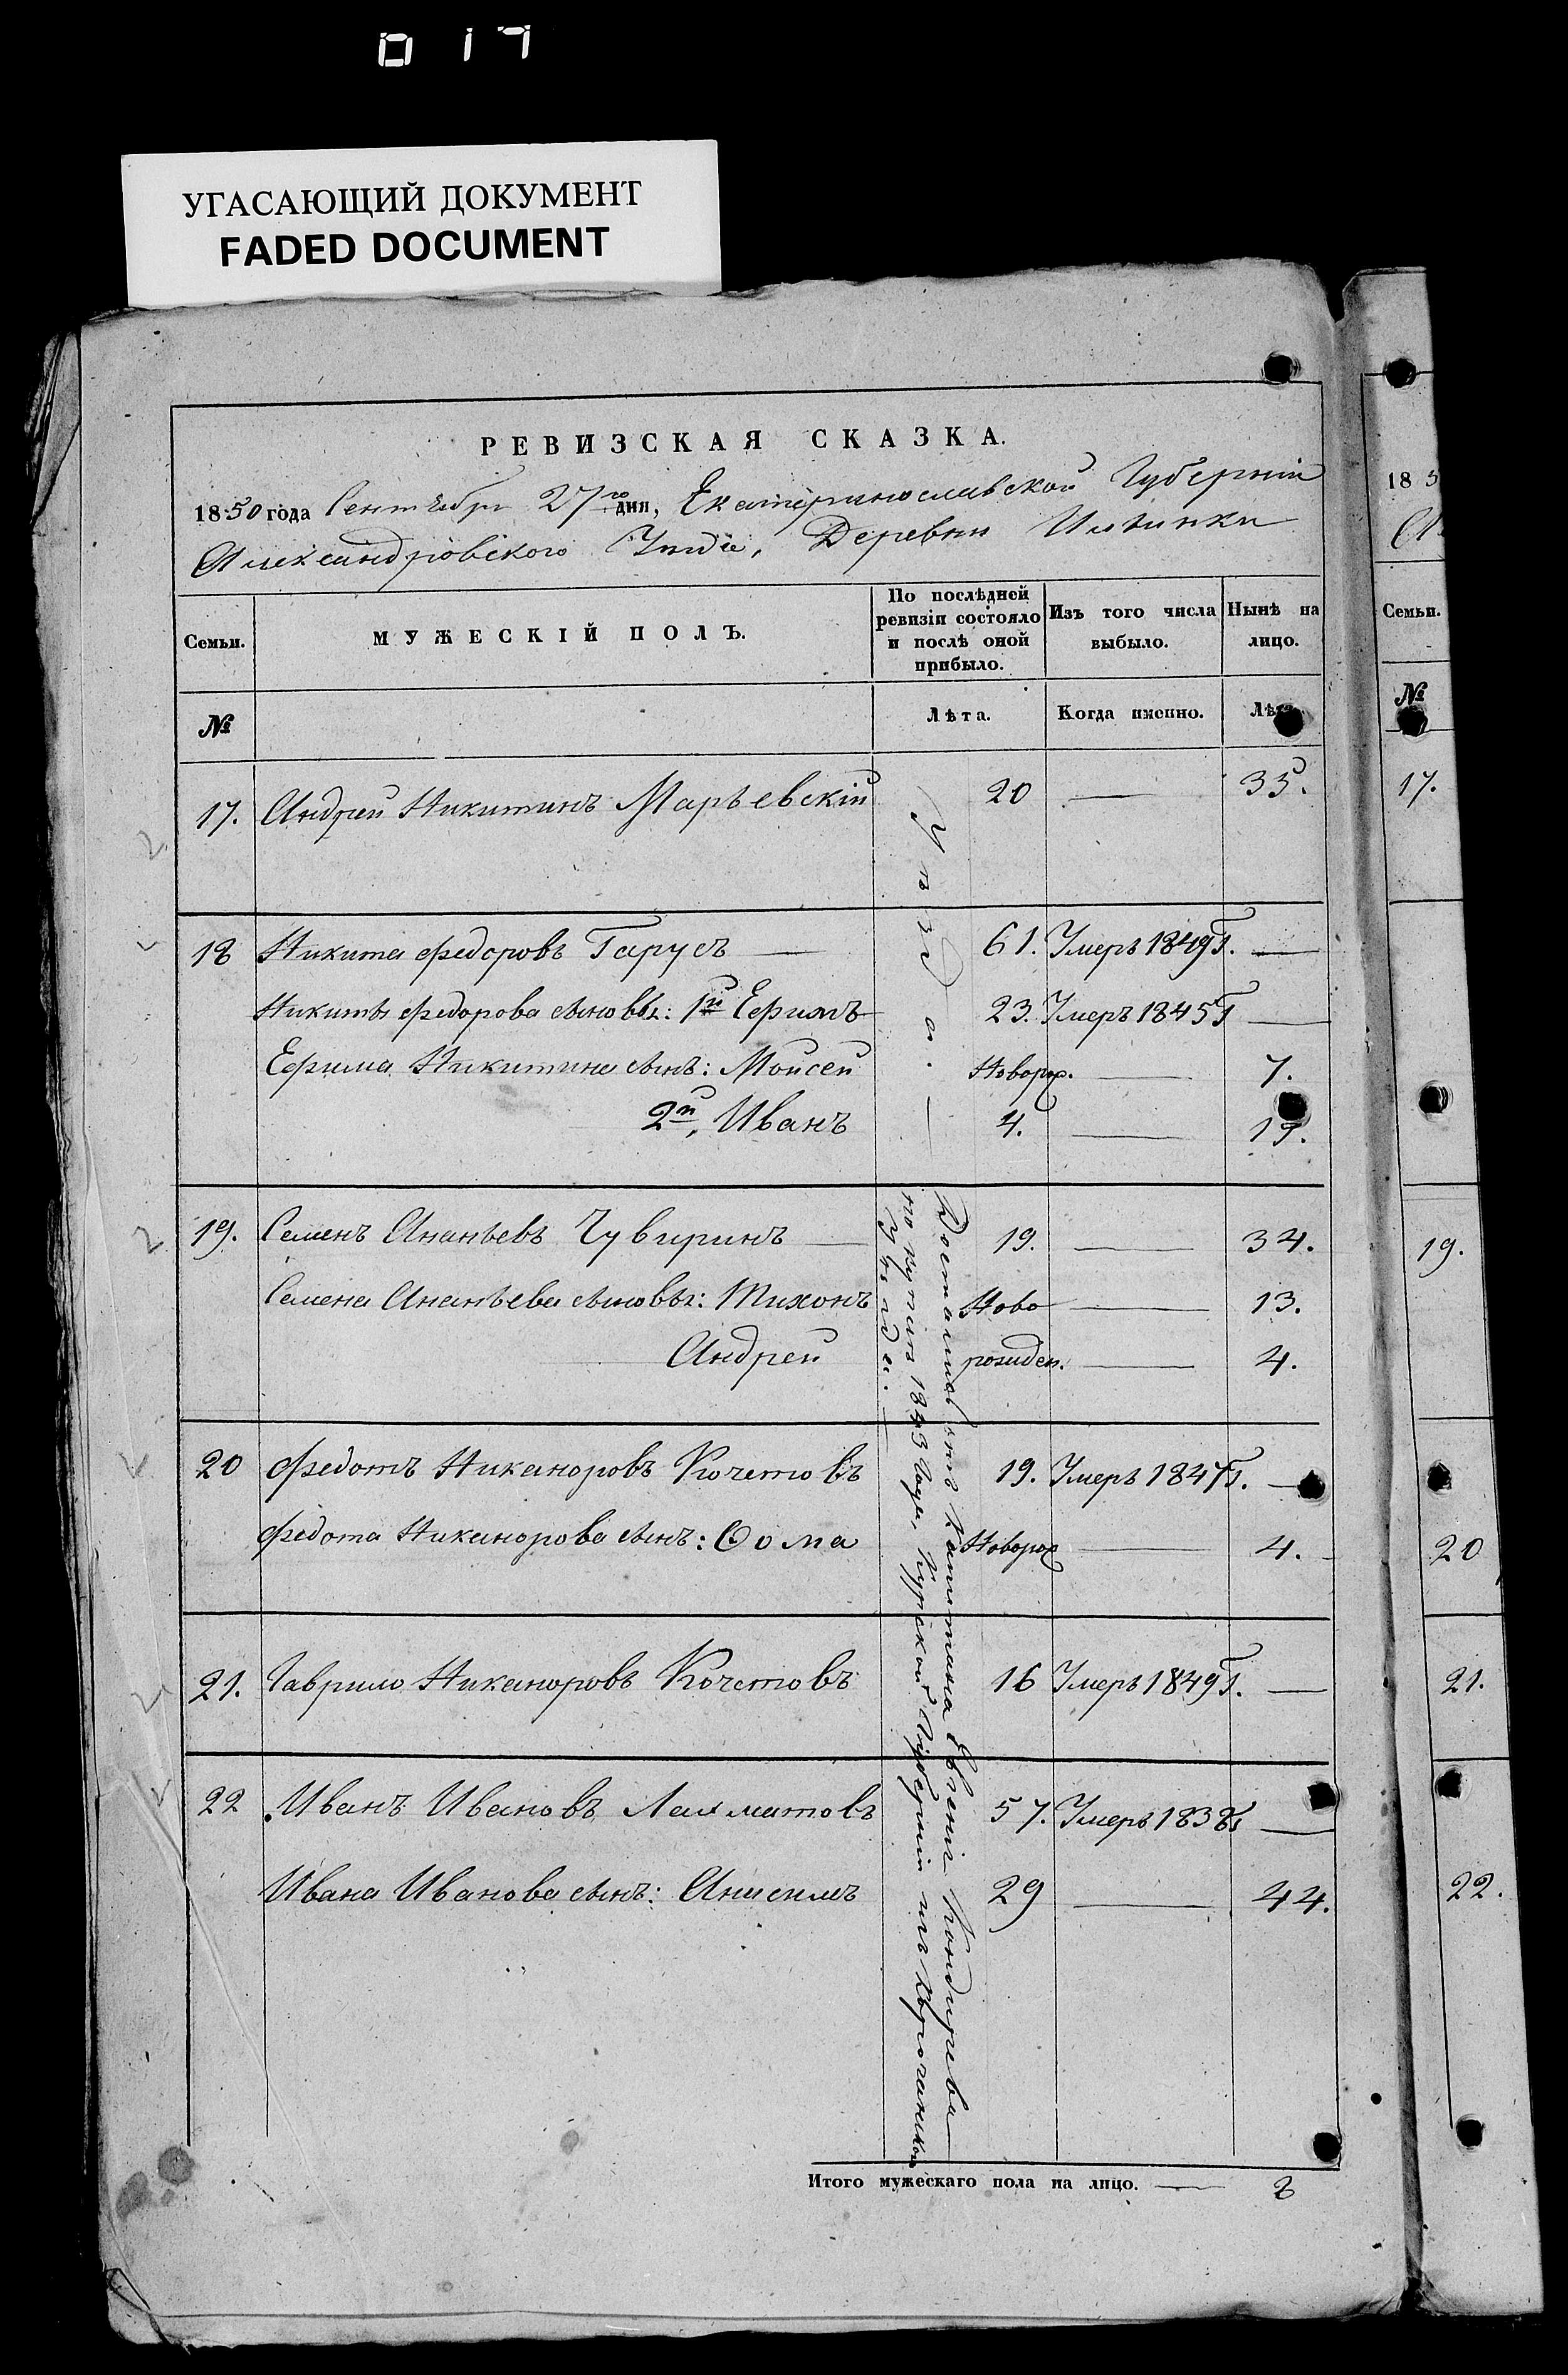 017
УГАСАЮЩИЙ ДОКУМЕНТ
FADED DOCUMENT
РЕВИЗСКАЯ СКАЗКА.
1850 года Сентября 27го дня, Екатеринославской Губерніи
Александровского Уѣзда, Деревни Ильинки
Семьи.
МУЖЕСКІЙ ПОЛЪ.
По послѣдней
ревизіи состояло
и послѣ оной
прибыло.
Изъ того числа
выбыло.
Нынѣ на
лицо.
№
Лѣта.
Когда именно.
Лѣта.
17. Андрей Никитинъ Марьевскій 20 — 35.
18 Никита Федоровъ Гарусъ — 61. Умеръ 1849 г. —
Никиты Федорова сыновья: 1й Ефимъ 23. Умеръ 1845 г —
Ефима Никитина сынъ: Мойсей Новорж. — 7.
2й, Иванъ 4. — 19.
19. Семенъ Ананьевъ Чувиринъ — 19. — 34.
Семена Ананьева сыновья: Тихонъ Ново — 13.
Андрей рожден. — 4.
20 Федотъ Никаноровъ Кочетовъ 19. Умеръ 1847 г. —
Федота Никанорова сынъ: Ѳома Новорж — 4.
21. Гаврило Никаноровъ Кочетовъ 16 Умеръ 1849 г. —
22 Иванъ Ивановъ Лахматовъ 57. Умеръ 1838 г —
Ивана Иванова сынъ: Анисимъ 29 — 44.
Уѣзда. —
Доставшіеся отъ Капитана Евгенія Кондырева
по купчей 1843 года, Курской Губерніи изъ Корочанского
уѣзда. —
Итого мужескаго пола на лицо. — 8
18 5
А
Семьи.
№
17.
19.
20
21.
22.